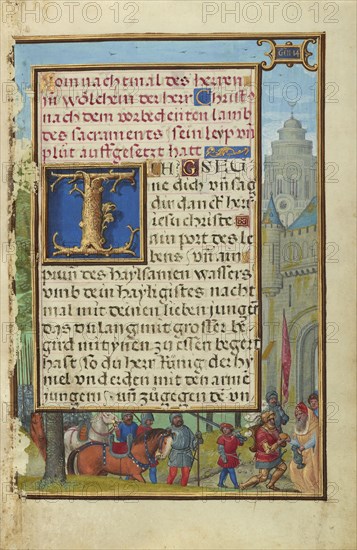 GEN 14
Vom nachtmal des herren
in wölchem der herr Christus
nach dem verbechenten lamb
des sacraments sein leyp vn̄
plůt auffgesetzt hatt
ICH GSEG
ne dich vn̄ sag
dir danck herr
iesu christe
ain port des le
bens vn̄ ain
prun̄ des haylsamen wassers
vmb dein hayligistes nacht
mal mit deinen lieben jungern
das du lang mit grosser be
gird mit ynen zu essen begert
hast so du herr kŭnig der hy
mel vn̄ erden mit den armen
jungern vn̄ zugegen de vn̄